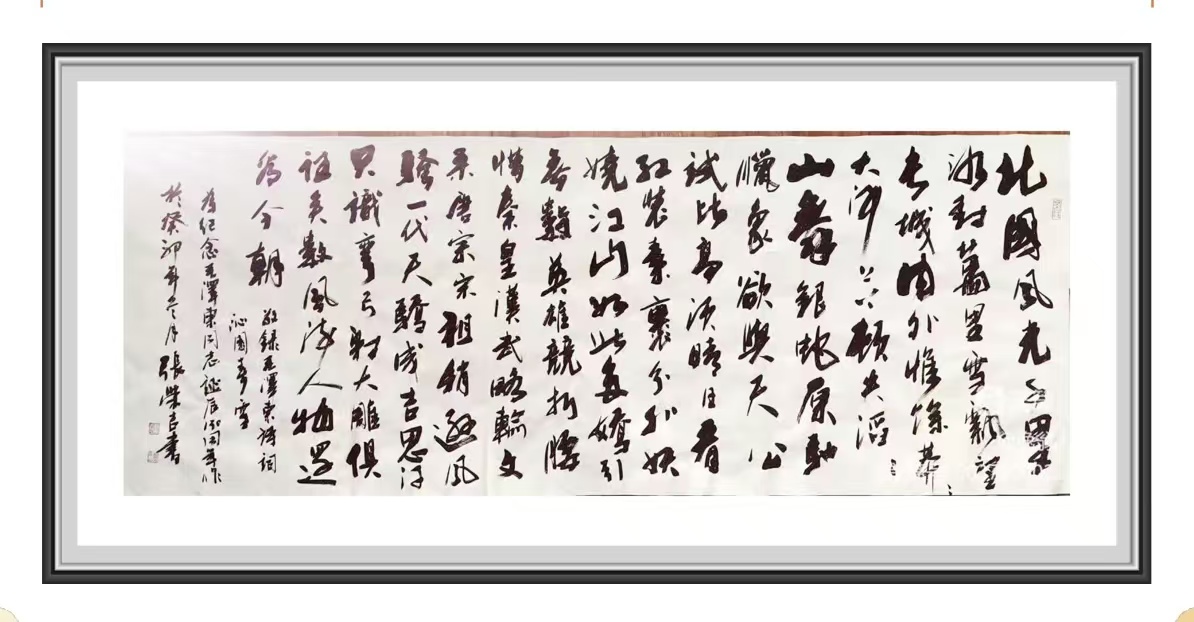 北國風光千里
冰封萬里雪飄望
長城内外惟餘莽〻
大河上下頓失滔〻
山舞銀蛇原馳
臘象欲與天公
試比高須晴日看
紅裝素裹分外妖
嬈江山如此多嬌引
無數英雄競折腰
惜秦皇漢武略輸文
采唐宗宋祖稍遜風
騷一代天驕成吉思汗
只識彎弓射大雕俱
往矣數風流人物還
看今朝 敬録毛澤東詩詞
沁園春雪
為紀念毛澤東同志誕辰周年作
於癸卯年冬月張榮吉書